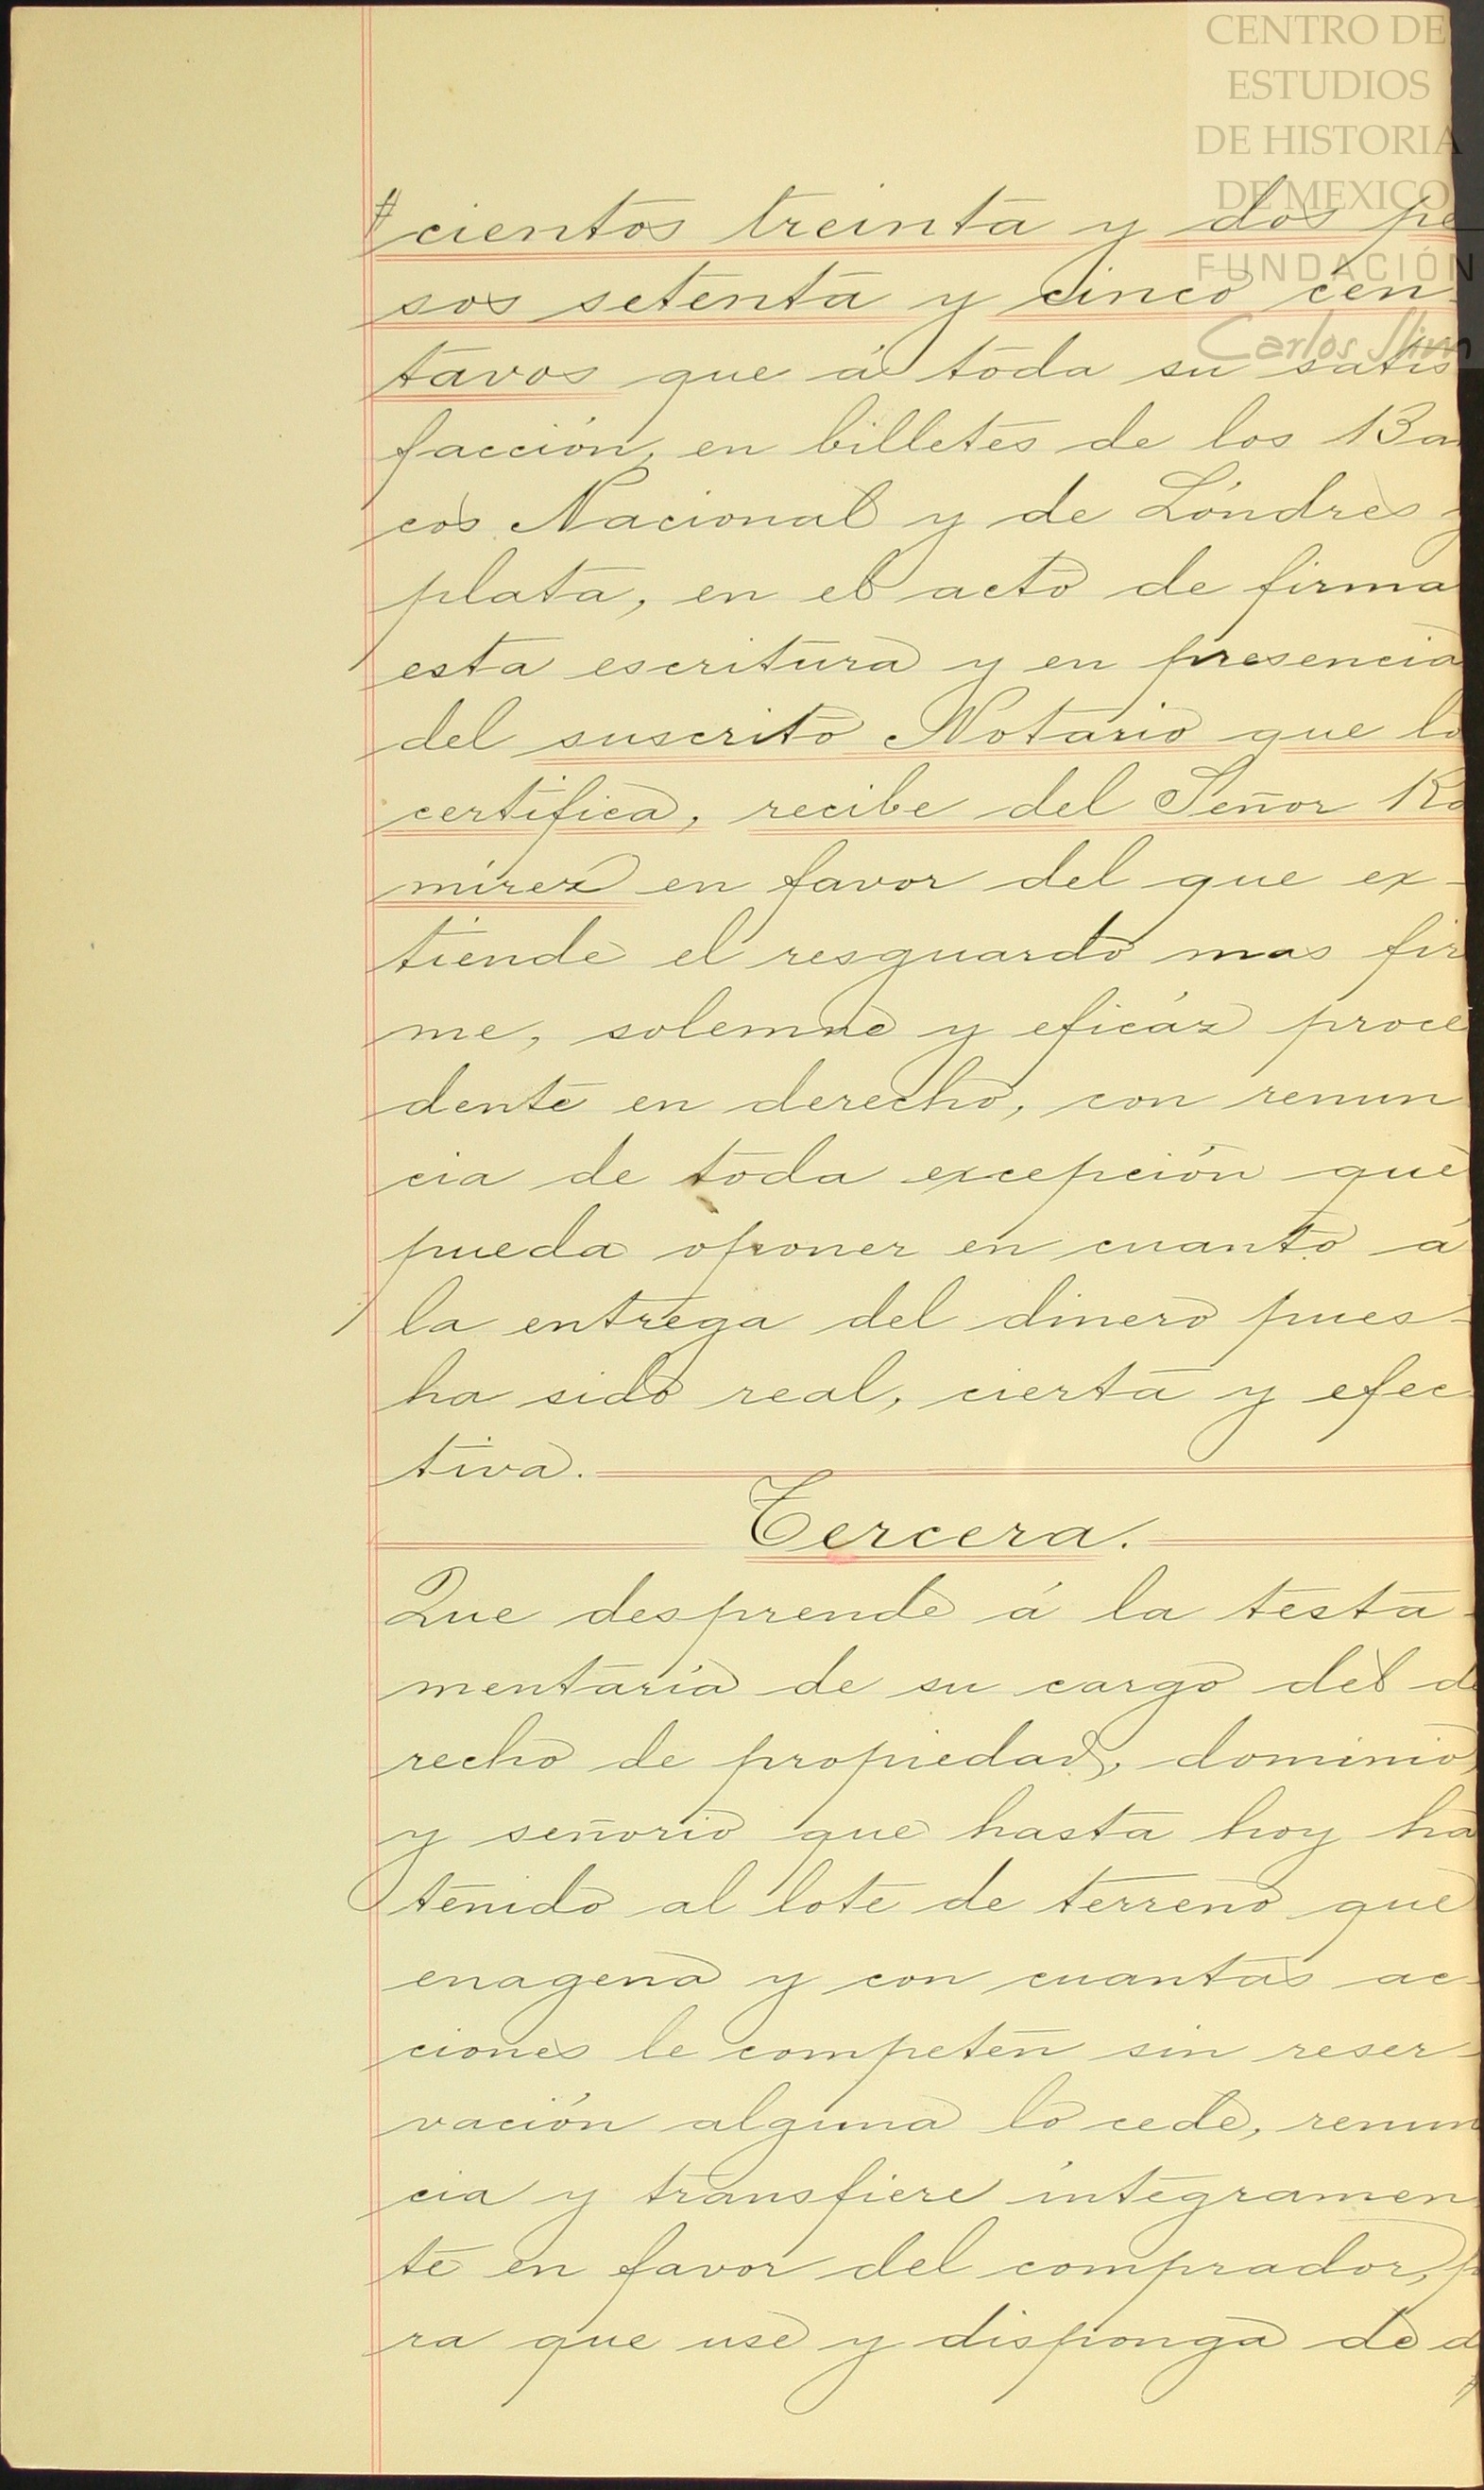 CENTRO DE
ESTUDIOS
DE HISTORIA
DE MEXICO
FUNDACIÓN
Carlos Slim
cientos treinta y dos pe
sos setenta y cinco cen
tavos que á toda su satis
facción, en billetes de los Ba
cos Nacional y de Lóndres y
plata, en el acto de firma
esta escritura y en presencia
del suscrito Notario que lo
certifica, recibe del Señor Ra
mírez en favor del que ex-
tiende el resguardo mas fir
me, solemne y eficáz proce
dente en derecho, con renun
cia de toda excepción que
pueda oponer en cuanto á
la entrega del dinero pues-
ha sido real, cierta y efec
tiva.
Tercera.
Que desprende á la testa-
mentaría de su cargo del de
recho de propiedad, dominio,
y señorio que hasta hoy ha
tenido al lote de terreno que
enagena y con cuantas ac-
ciones le competen sin reser-
vación alguna lo cede, renun
cia y transfiere íntegramen
te en favor del comprador, p
ra que use y disponga de